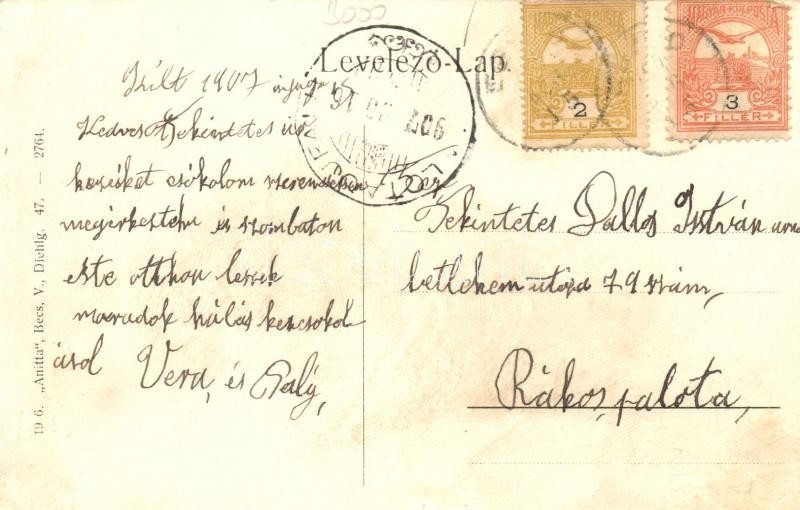 3000
Levelező-Lap.
MAGYAR KIR. POSTA
2
FILLÉR
MAGYAR KIR. POSTA
3
FILLÉR
Kélt 1907
Kedves Tekintetes úr
kezeiket csókolom szerencsésen
megérkeztem és szombaton
este otthon leszek
maradok hálás kezcsokol
ásol Vera, és Paly,
Tekintetes Dallos István
betlehem utcza 79 szám,
Rákos,palota,
19 6. „Anitta", Becs, V., Diehlg. 47. — 2764.